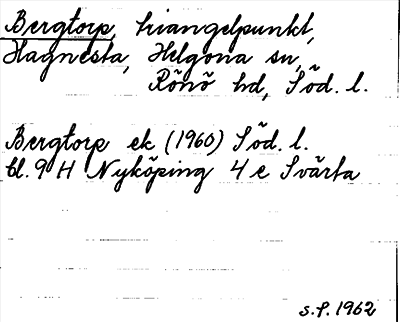 Bergtorp, triangelpunkt,
Hagnesta, Helgona sn,
Rönö hd, Söd. l.
Bergtorp ek (1960) Söd. l.
bl. 9 H Nyköping 4 e Svärta
s.f. 1962